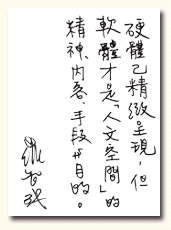 硬體已精緻呈現，但
軟體才是「人文空間」的
精神、內容、手段與目的。